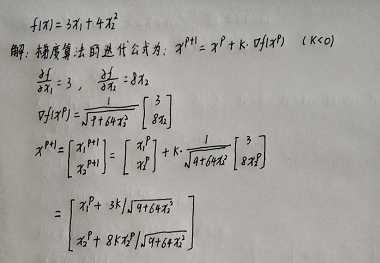 f(x) = 3x₁ + 4x₂²
解: 梯度算法的迭代公式为: x^{p+1} = x^p + k·∇f(x^p) (k<0)
∂f/∂x₁ = 3, ∂f/∂x₂ = 8x₂
∇f(x^p) = 1/√(9+64x₂²) [3; 8x₂]
x^{p+1} = [x₁^{p+1}; x₂^{p+1}] = [x₁^p; x₂^p] + k· 1/√(9+64x₂²) [3; 8x₂^p]
= [x₁^p + 3k/√(9+64x₂²); x₂^p + 8kx₂^p/√(9+64x₂²)]